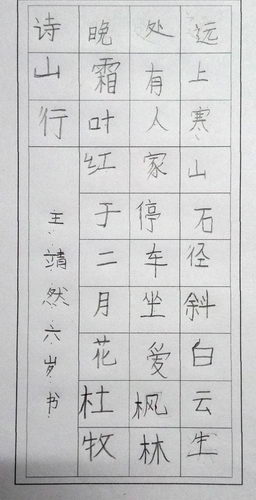 远上寒山石径斜白云生
处有人家停车坐爱枫林
晚霜叶红于二月花杜牧
诗山行
王靖然六岁书